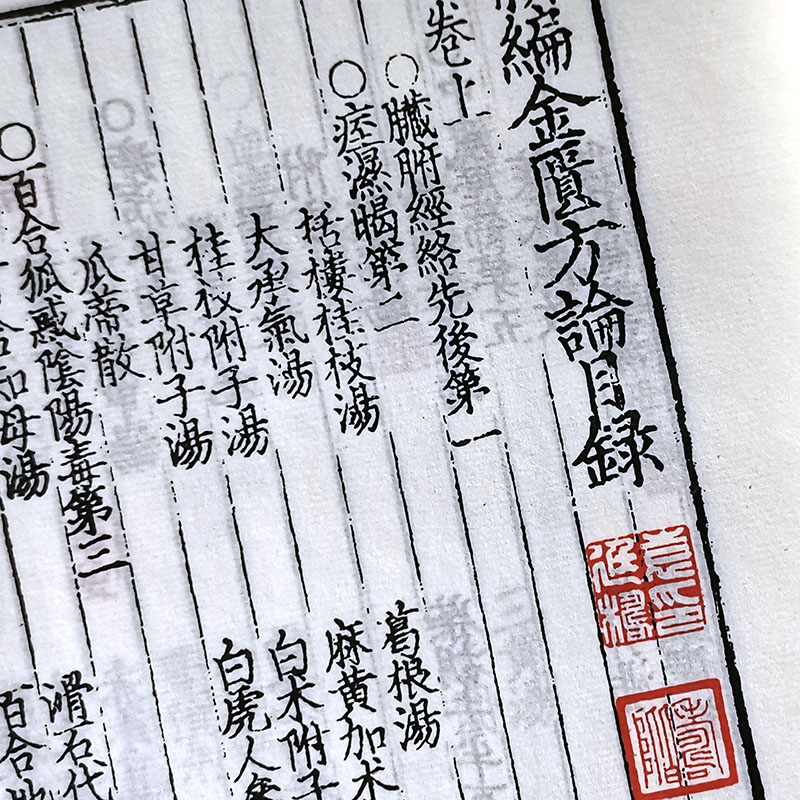 編金匱方論目録
卷上
○臟腑經絡先後第一
○痓濕暍第二
括樓桂枝湯 葛根湯
大承氣湯 麻黄加术
桂枝附子湯 白术附子
甘草附子湯 白虎人
瓜蒂散
○百合狐惑隂陽毒第三
合知母湯 滑石代
百合地